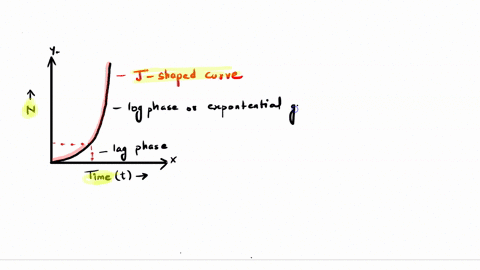 y
J-shaped curve
N →
log phase or expontential g
lag phase
x
Time (t) →